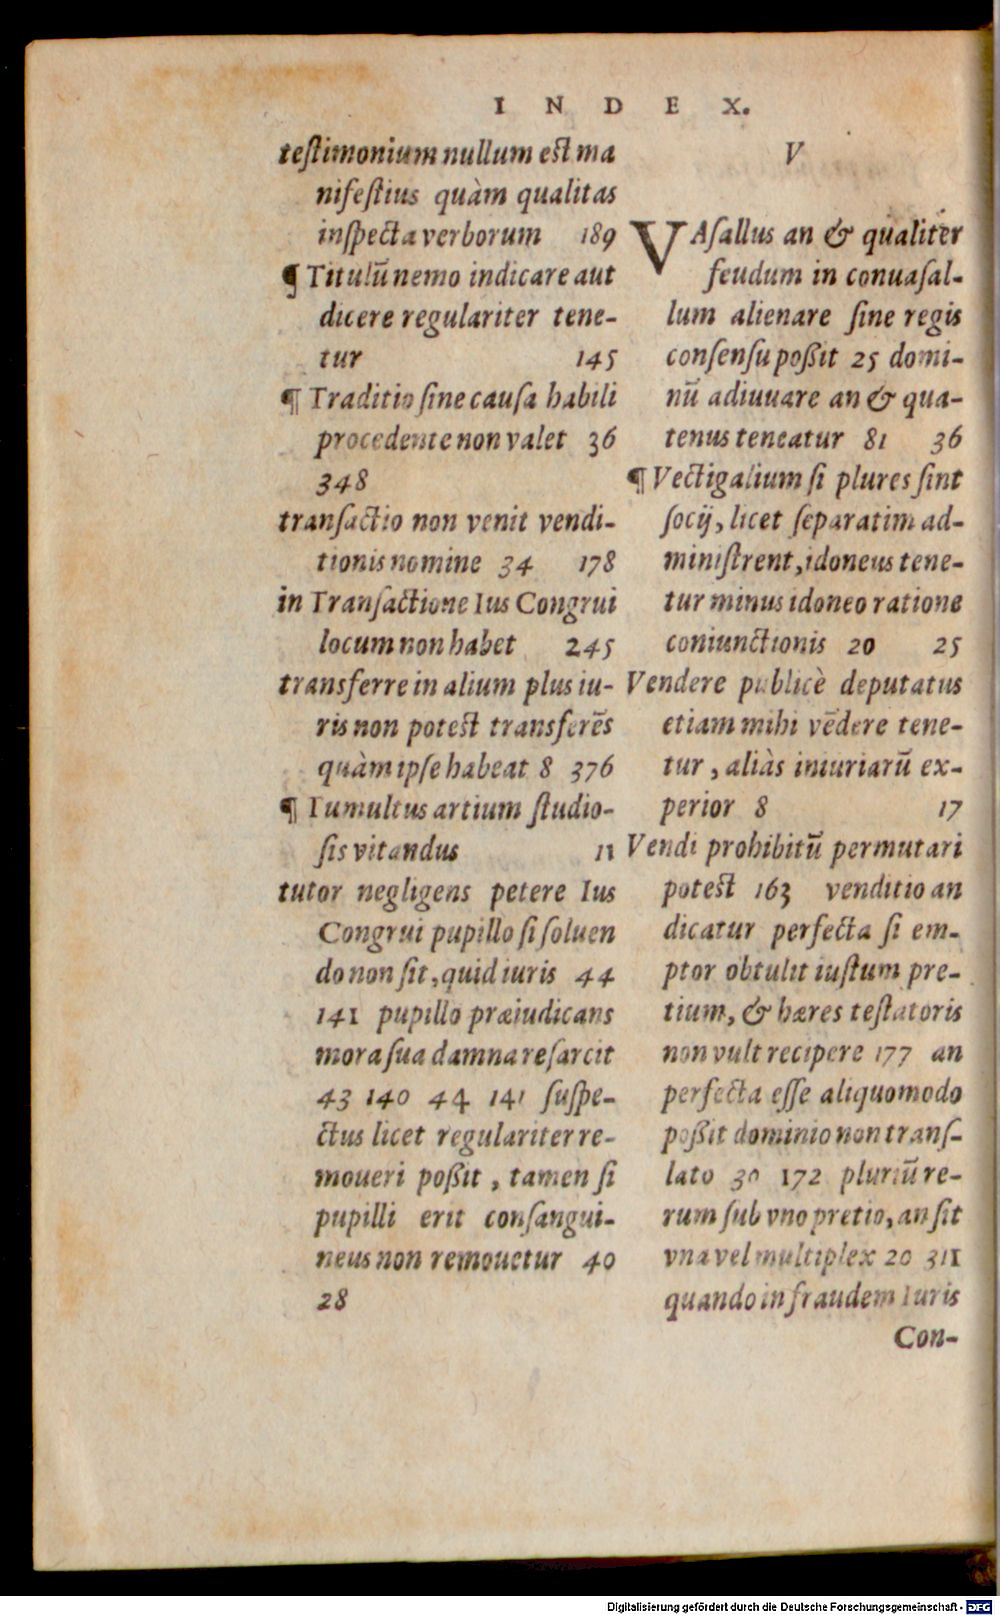 INDEX.
teſtimonium nullum eſt ma
nifeſtius quàm qualitas
inſpecta verborum 189
¶ Titulū nemo indicare aut
dicere regulariter tene-
tur 145
¶ Traditio ſine cauſa habili
procedente non valet 36
348
tranſactio non venit vendi-
tionis nomine 34 178
in Tranſactione Ius Congrui
locum non habet 245
transferre in alium plus iu-
ris non poteſt transferēs
quàm ipſe habeat 8 376
¶ Tumultus artium ſtudio-
ſis vitandus 11
tutor negligens petere Ius
Congrui pupillo ſi ſoluen
do non ſit, quid iuris 44
141 pupillo præiudicans
mora ſua damna reſarcit
43 140 44 141 ſuſpe-
ctus licet regulariter re-
moueri poßit, tamen ſi
pupilli erit conſangui-
neus non remouetur 40
28
V
VAſallus an & qualiter
feudum in conuaſal-
lum alienare ſine regis
conſenſu poßit 25 domi-
nū adiuuare an & qua-
tenus teneatur 81 36
¶ Vectigalium ſi plures ſint
ſocij, licet ſeparatim ad-
miniſtrent, idoneus tene-
tur minus idoneo ratione
coniunctionis 20 25
Vendere publicè deputatus
etiam mihi vēdere tene-
tur, aliàs iniuriarū ex-
perior 8 17
Vendi prohibitū permutari
poteſt 163 venditio an
dicatur perfecta ſi em-
ptor obtulit iuſtum pre-
tium, & hæres teſtatoris
non vult recipere 177 an
perfecta eſſe aliquomodo
poßit dominio non tranſ-
lato 30 172 pluriū re-
rum ſub vno pretio, an ſit
vna vel multiplex 20 311
quando in fraudem Iuris
Con-
Digitalisierung gefördert durch die Deutsche Forschungsgemeinschaft - DFG